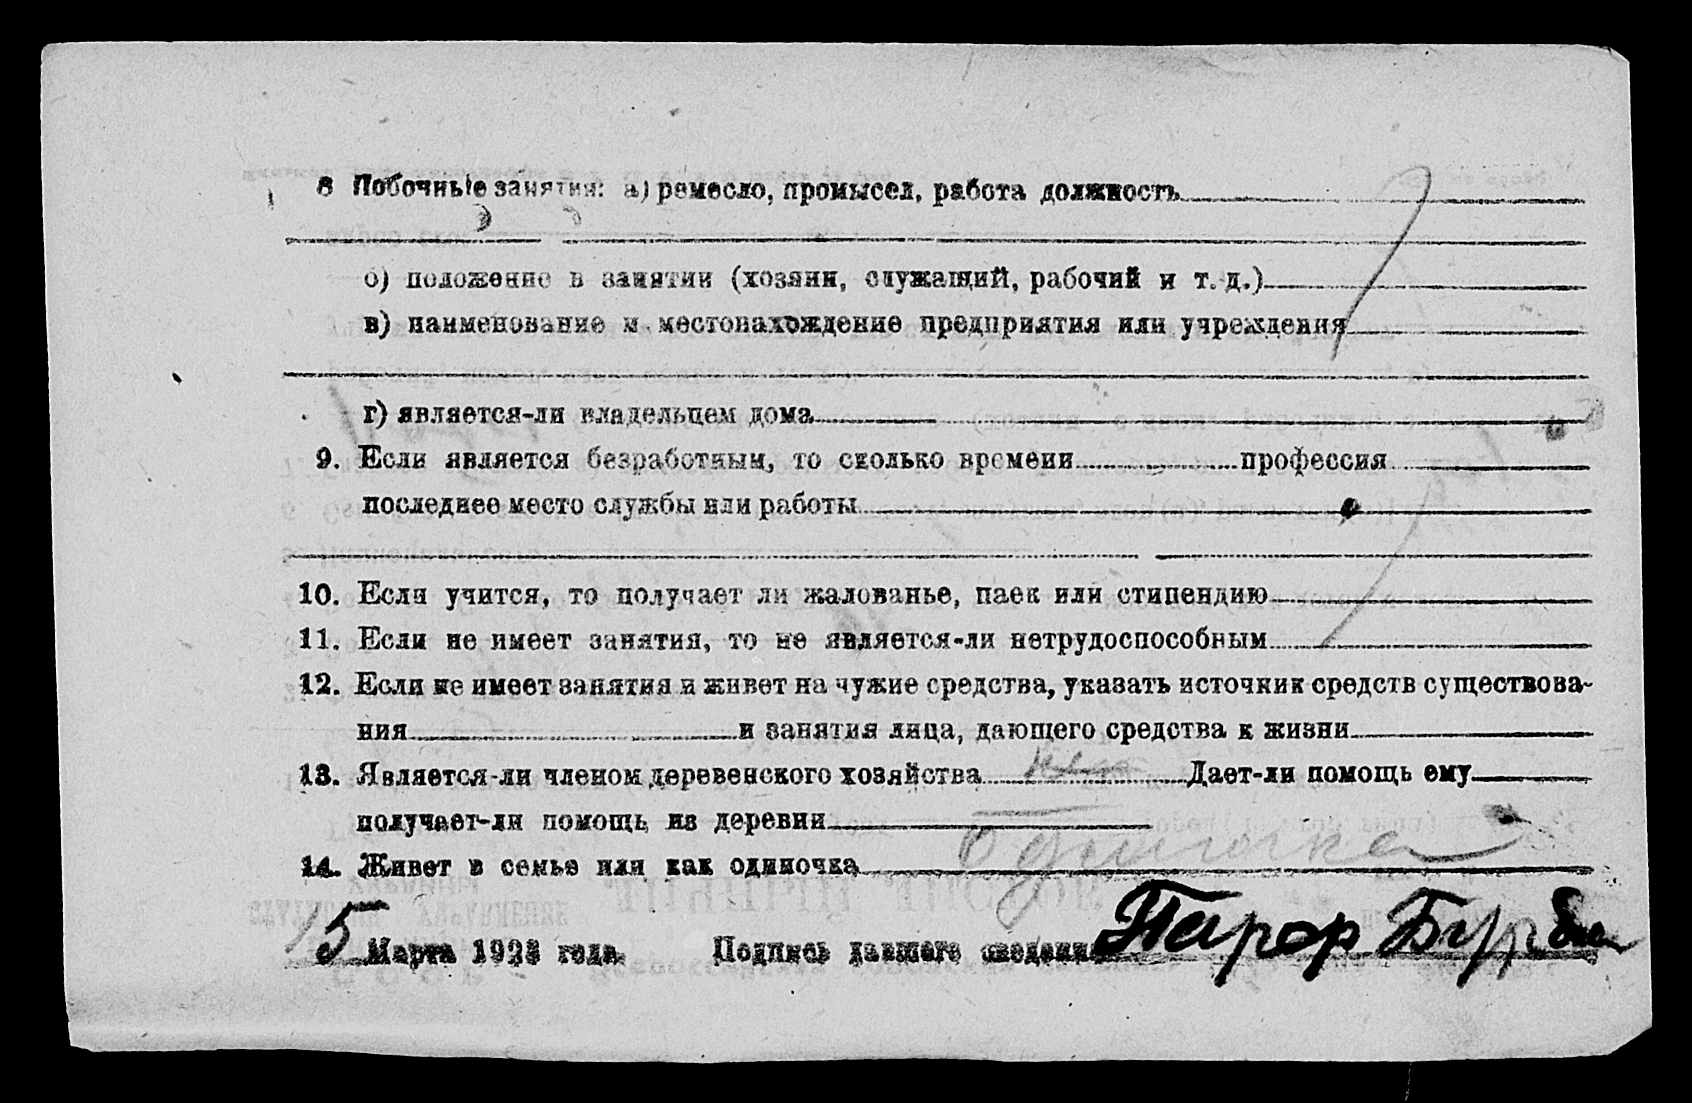 8 Побочные занятия: а) ремесло, промысел, работа должность
б) положение в занятии (хозяин, служащий, рабочий и т. д.)
в) наименование и местонахождение предприятия или учреждения
г) является-ли владельцем дома
9. Если является безработным, то сколько времени профессия
последнее место службы или работы
10. Если учится, то получает ли жалованье, паек или стипендию
11. Если не имеет занятия, то не является-ли нетрудоспособным
12. Если не имеет занятия и живет на чужие средства, указать источник средств существова-
ния и занятия лица, дающего средства к жизни
13. Является-ли членом деревенского хозяйства нет Дает-ли помощь ему
получает-ли помощь из деревни
14. Живет в семье или как одиночка одиночка
15 Марта 1923 года. Подпись давшего сведения